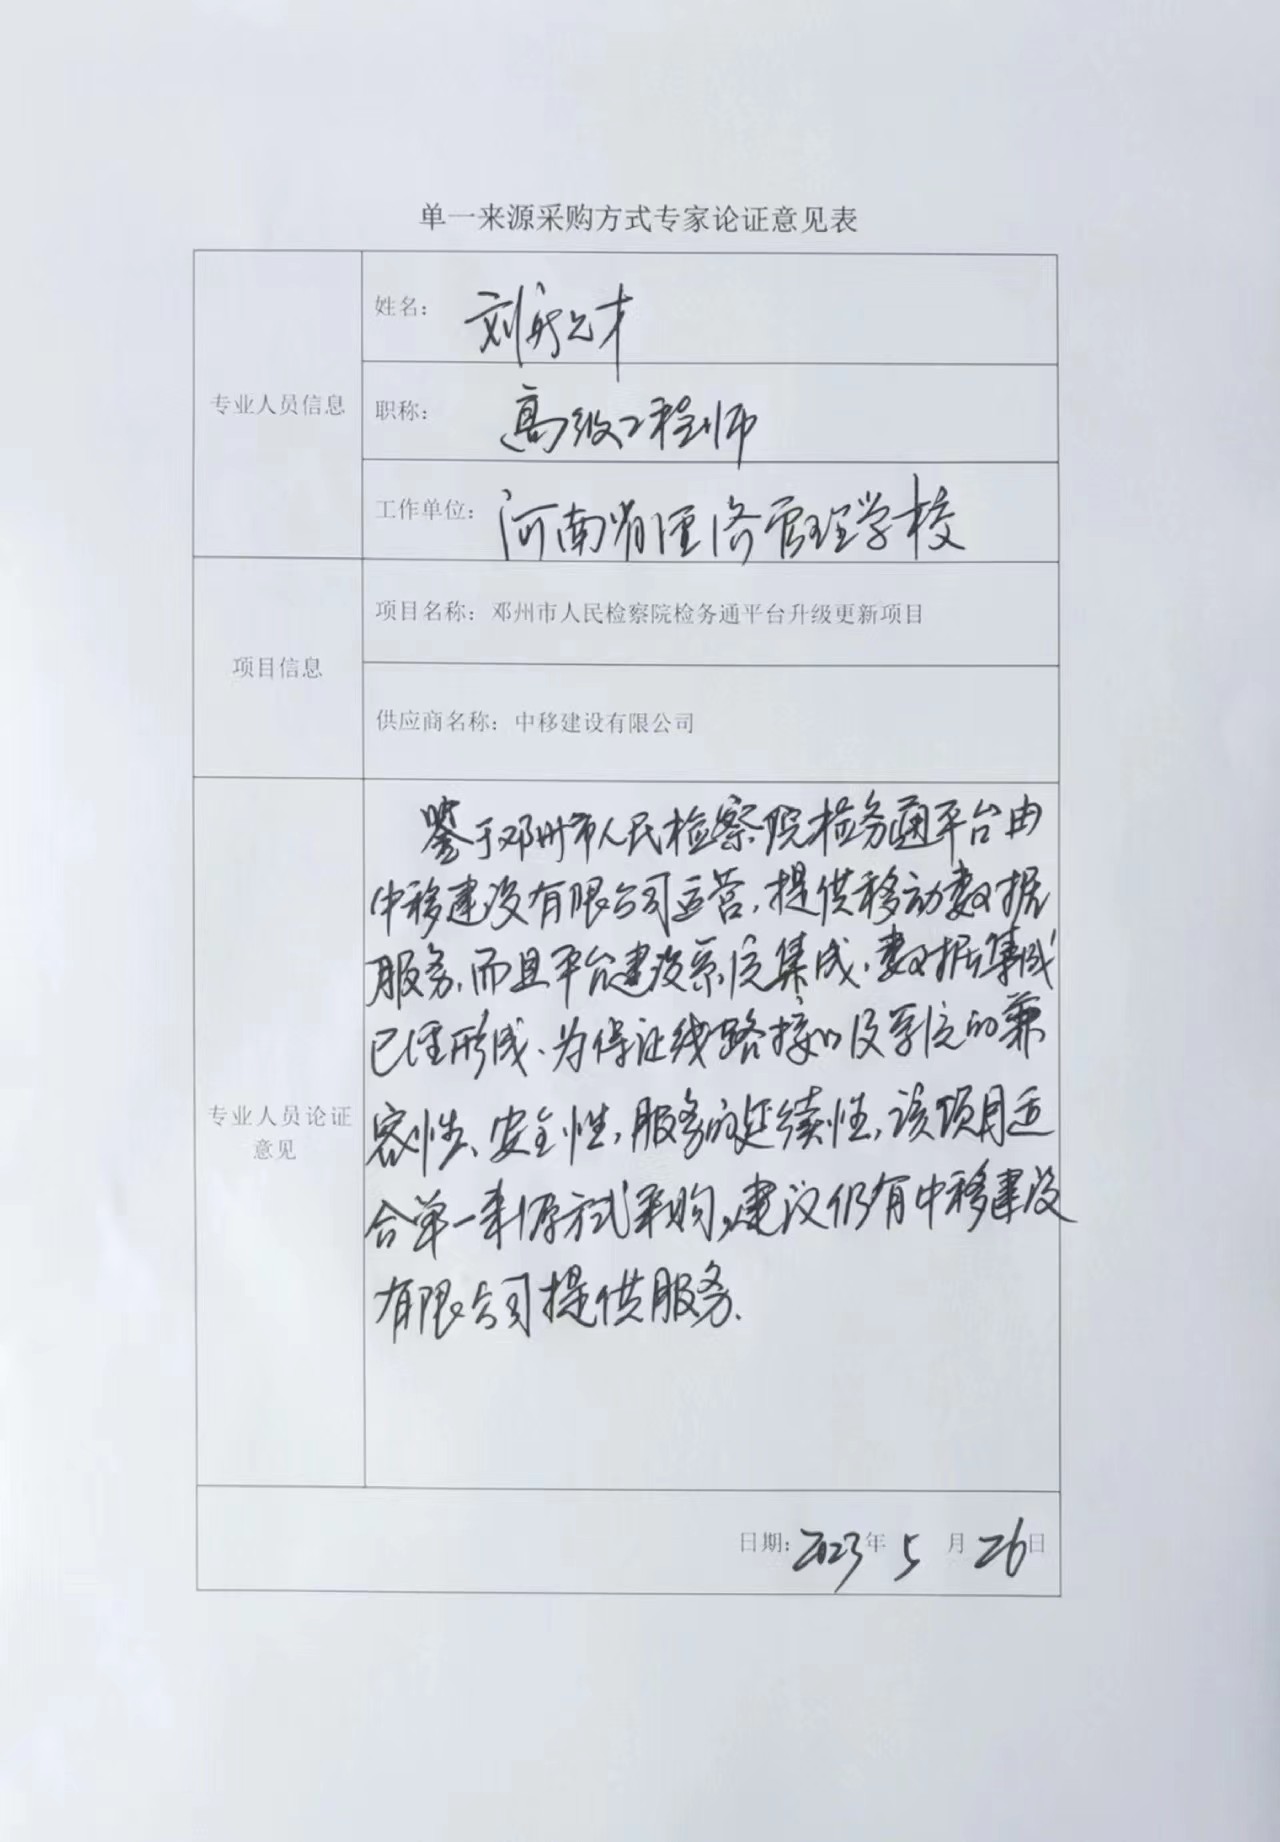 单一来源采购方式专家论证意见表
专业人员信息
姓名：刘 才
职称：高级工程师
工作单位：河南省经济管理学校
项目信息
项目名称：邓州市人民检察院检务通平台升级更新项目
供应商名称：中移建设有限公司
专业人员论证
意见
鉴于邓州市人民检察院检务通平台由
中移建设有限公司运营，提供移动数据
服务，而且平台建设系统集成、数据集成
已经形成、为保证线路接口及系统的兼
容性、安全性，服务的延续性，该项目适
合单一来源方式采购，建议仍有中移建设
有限公司提供服务.
日期：2023年 5 月 26日